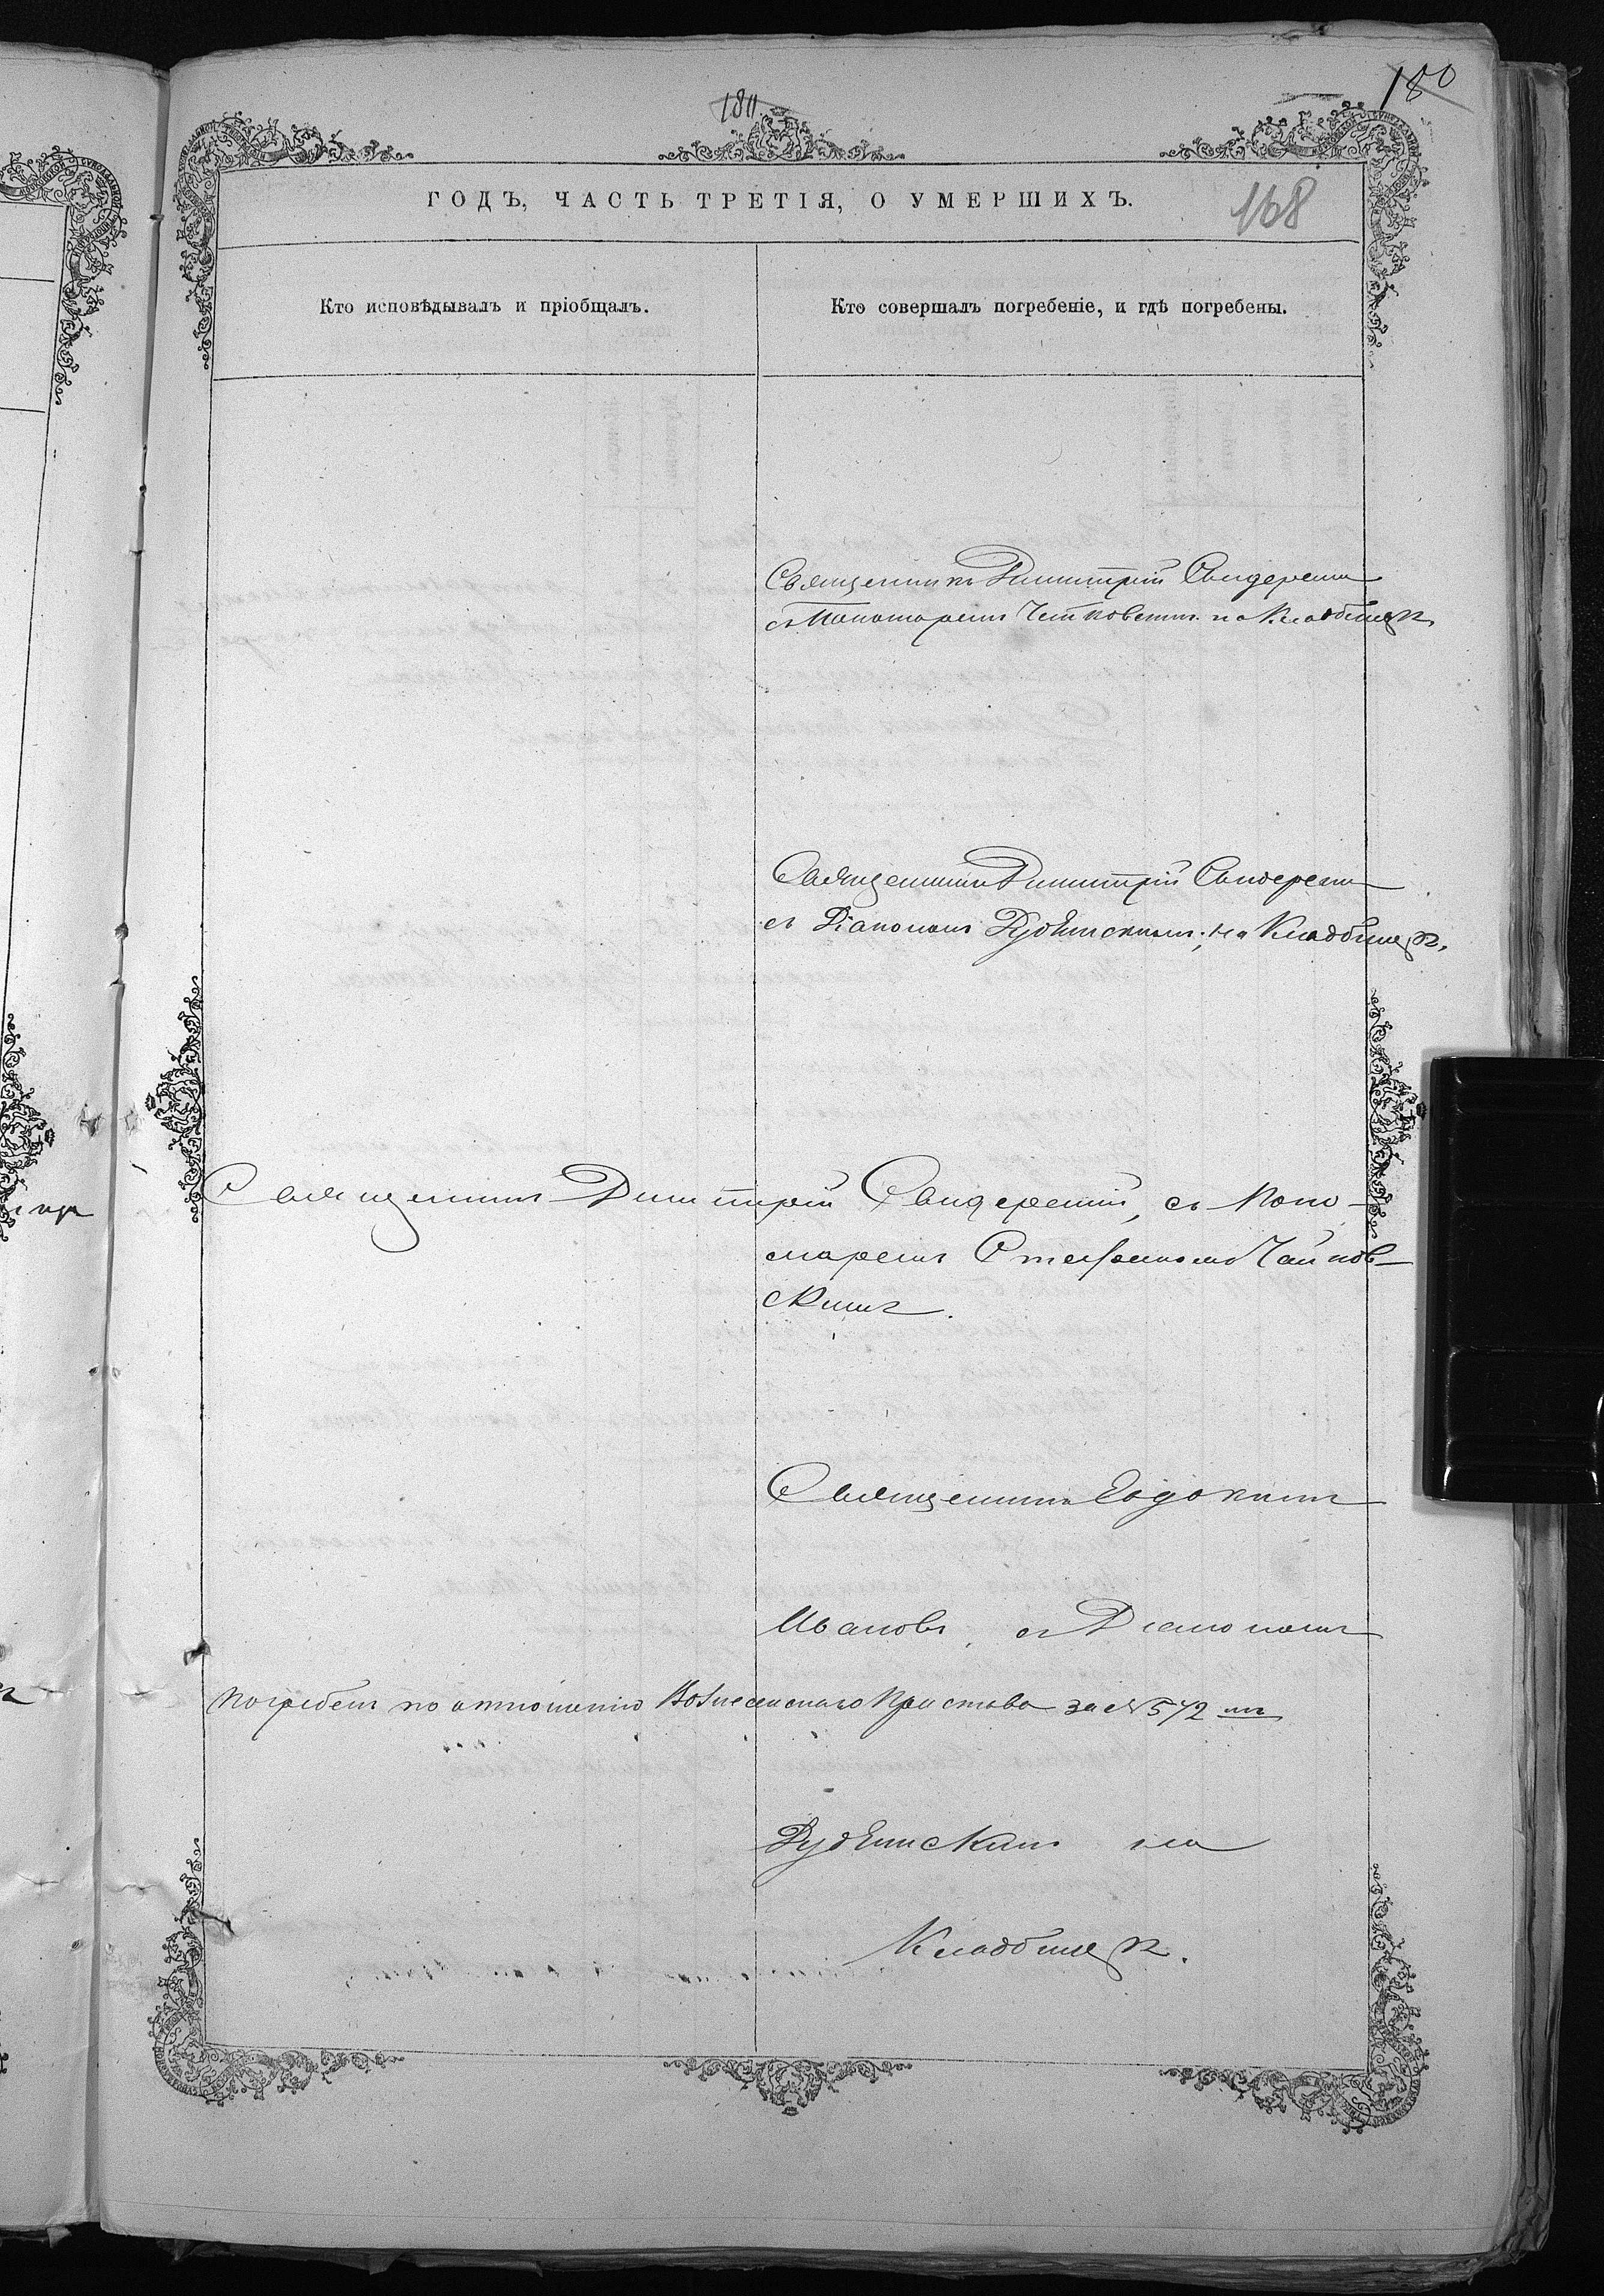 180
ГОДЪ, ЧАСТЬ ТРЕТІЯ, О УМЕРШИХЪ.
168
Кто исповѣдывалъ и пріобщалъ.
Кто совершалъ погребеніе, и гдѣ погребены.
Священникъ Димитрій
съ Пономаремъ на Кладбищѣ.
Священникъ Димитрій
съ Діакономъ Дубинскимъ, на Кладбищѣ.
Священникъ Димитрій Свидерскій, съ Поно-
маремъ Стефаномъ Чайков-
скимъ.
Священникъ Евдокимъ
Ивановъ, съ Діакономъ
погребенъ по отношенію Вознесенскаго Пристава за № 572
Дубинскимъ на
Кладбищѣ.